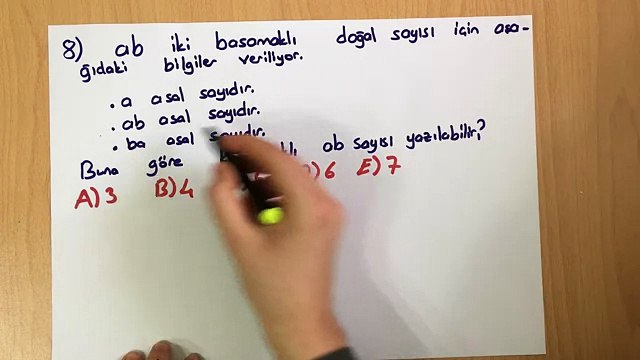 8) ab iki basamaklı doğal sayısı için aşa-
ğıdaki bilgiler veriliyor.
. a asal sayıdır.
. ab asal sayıdır.
. ba asal sayıdır.
Buna göre ab sayısı yazılabilir?
A) 3 B) 4 6 E) 7